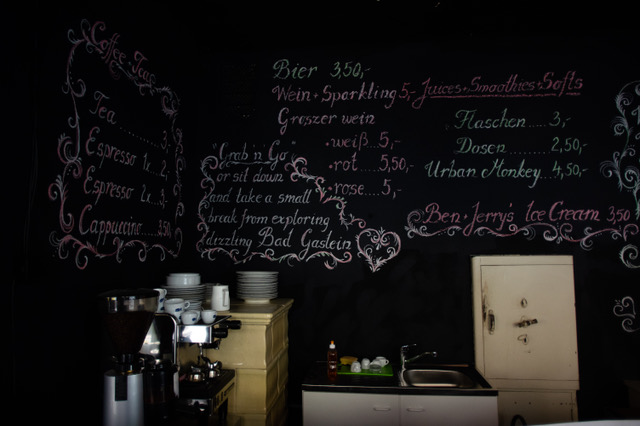 Coffee Teas
Tea ........ 3,-
Espresso 1x.. 2,-
Espresso 2x... 3,-
Cappuccino.....3,50
Bier 3,50,-
Wein + Sparkling 5,-
Groszer wein
• weiß.. 5,-
• rot..... 5,50,-
• rose.....5,-
"Grab 'n Go"
or sit down
and take a small
break from exploring
dizzling Bad Gastein
Juices + Smoothies + Softs
Flaschen.....3,-
Dosen.......2,50,-
Urban Monkey...4,50,-
Ben + Jerry's Ice Cream 3,50